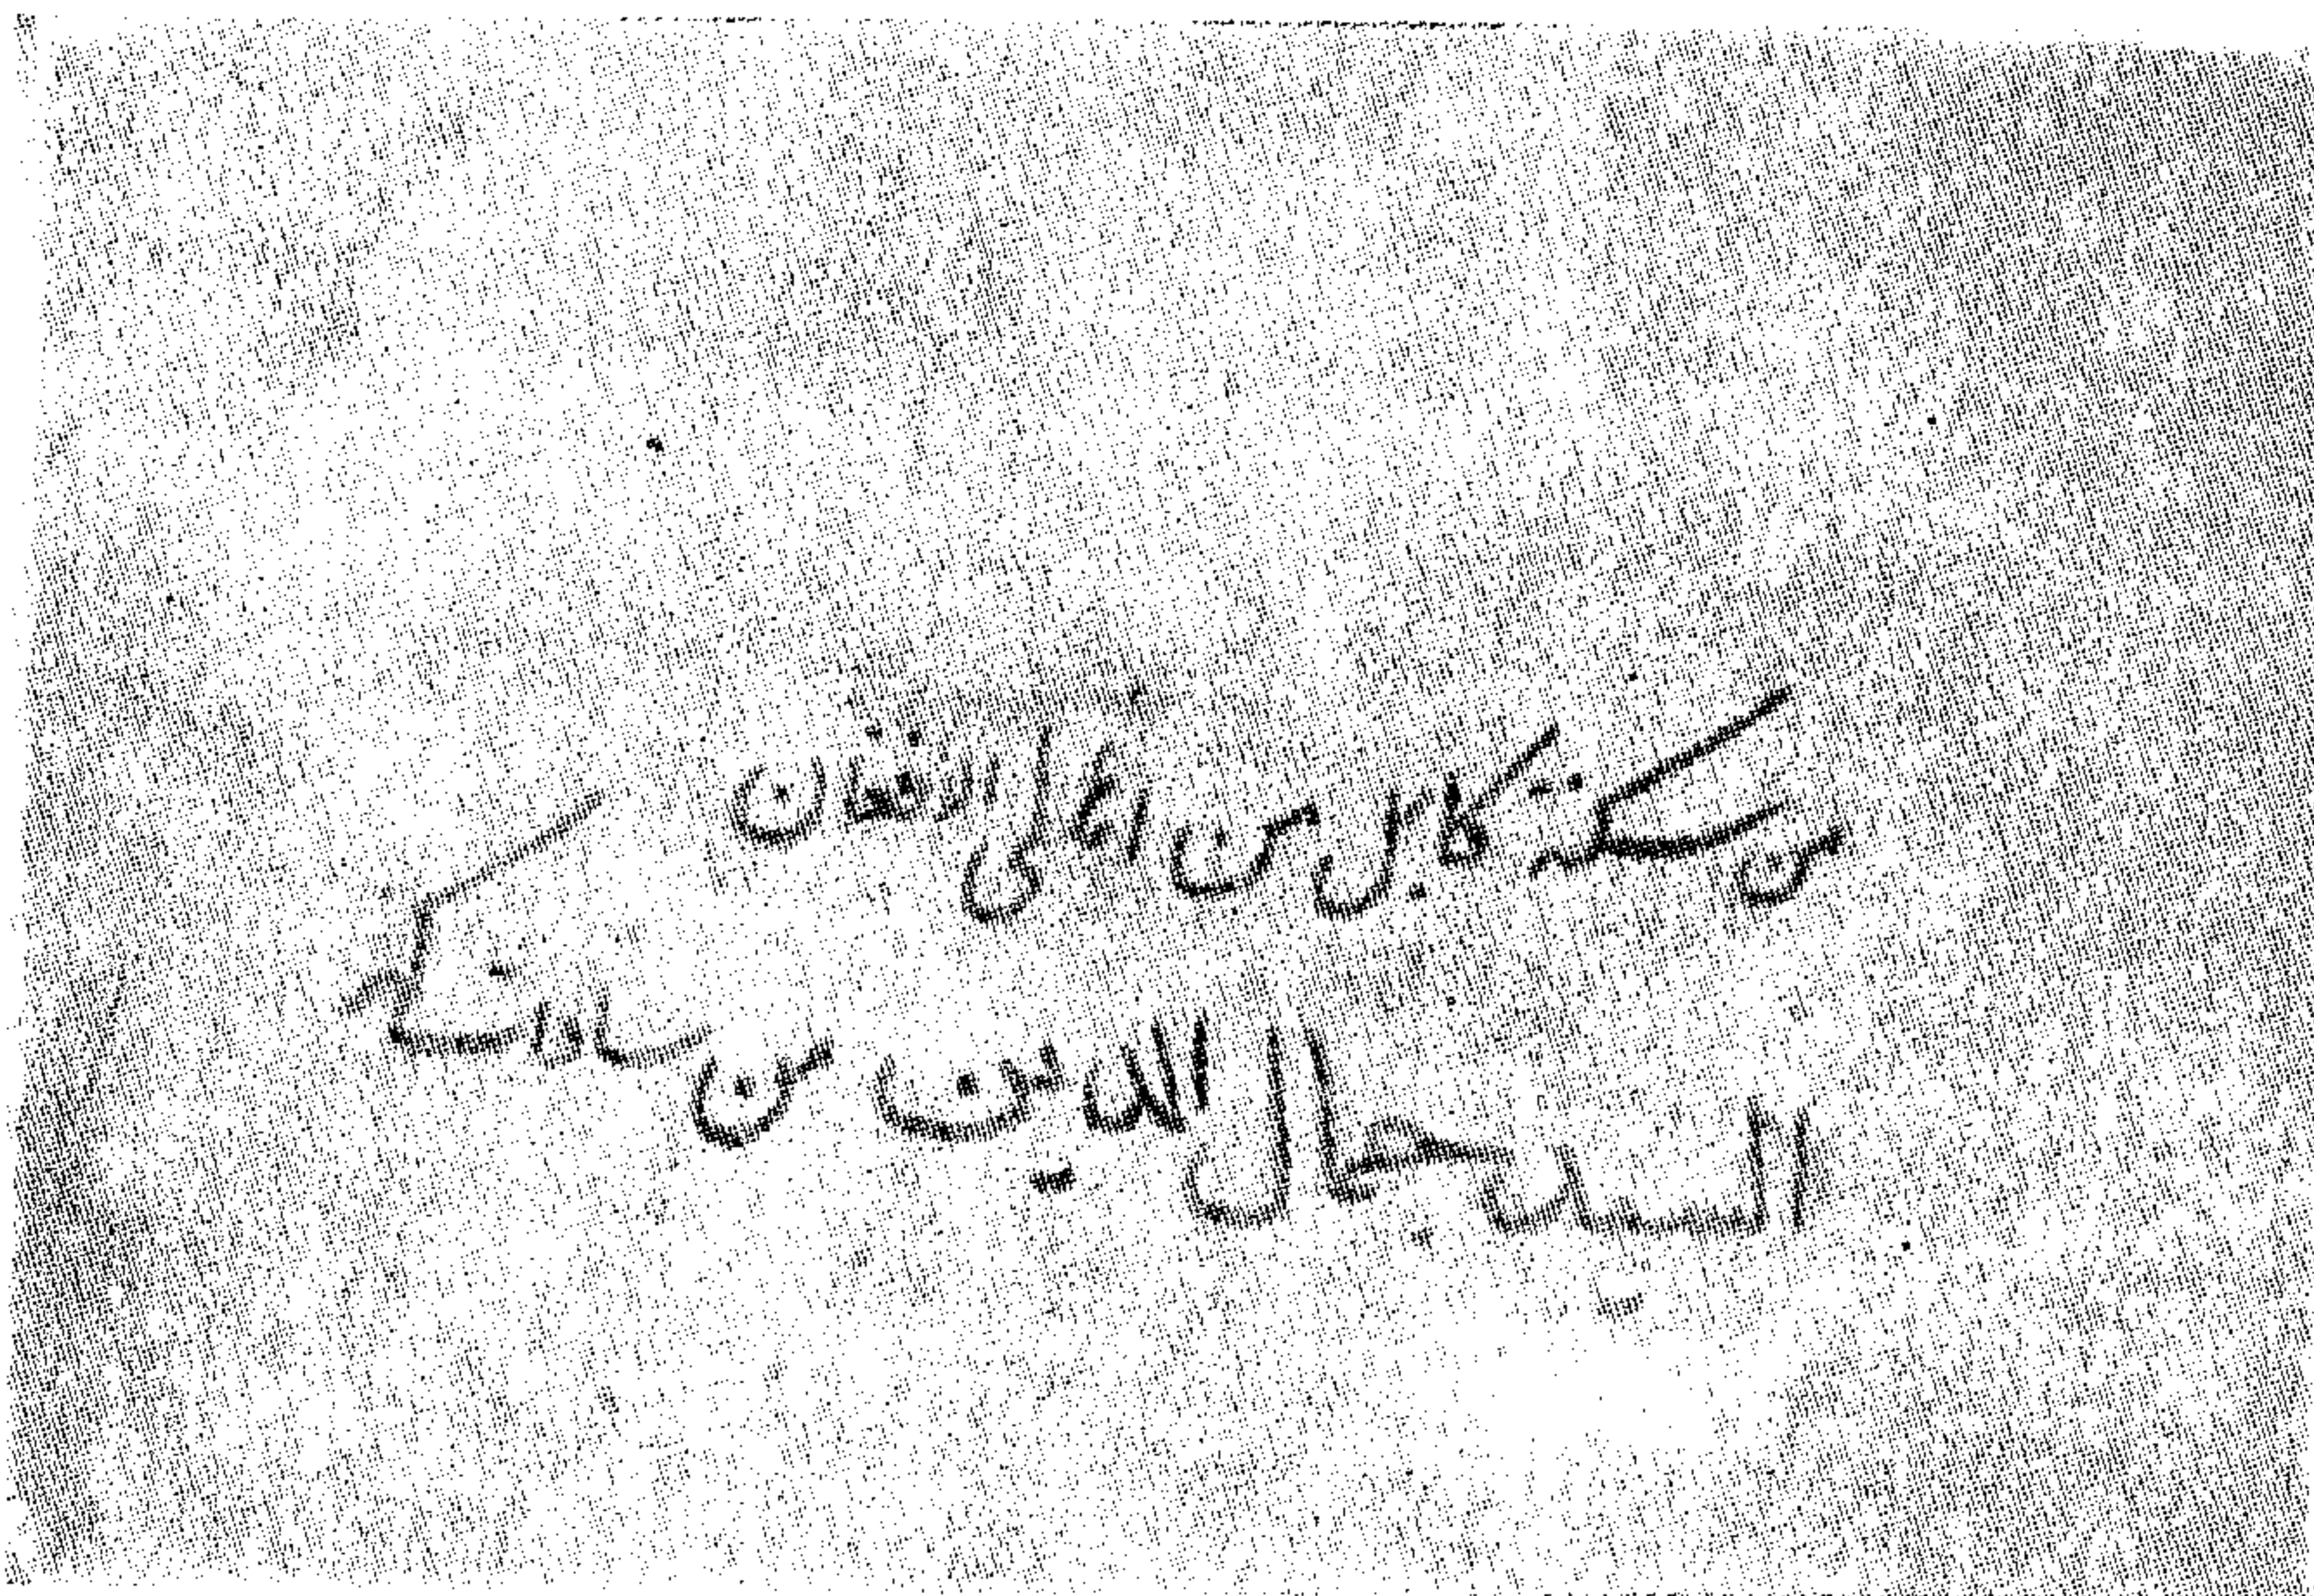 من سكنة كابل من اهالى افغان
السيد جمال الدين من سادات كنر